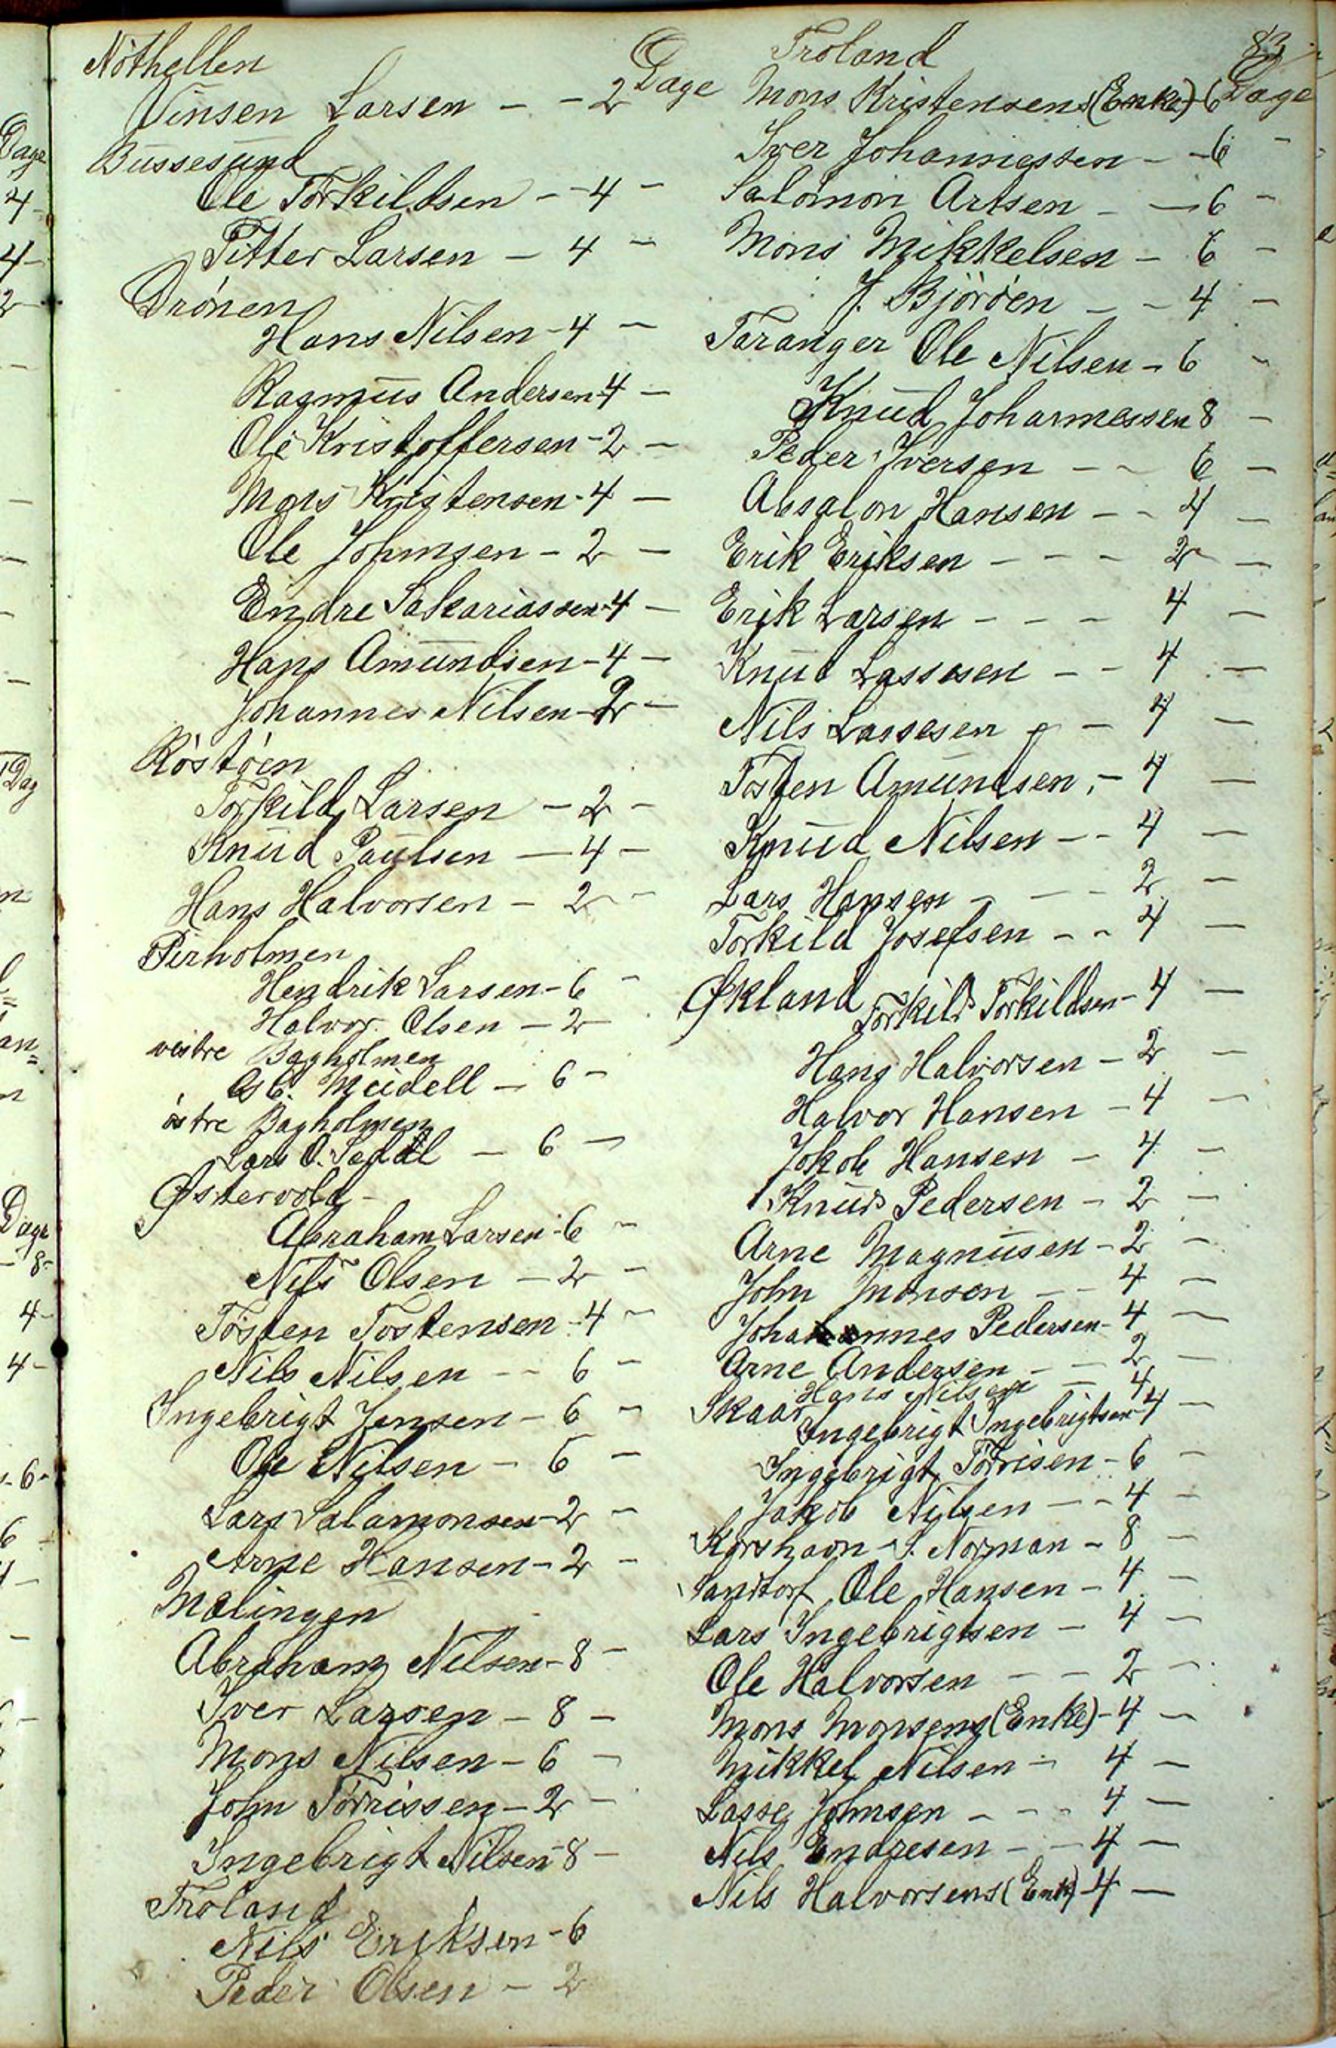 83
Nöthellen
Vinsen Larsen - - 2 Dage
Bussesund
Ole Torkildsen - - 4 -
Pitter Larsen - 4 -
Drönen
Hans Nilsen - 4 -
Rasmus Andersen - 4 -
Ole Kristoffersen - 2 -
Mons Kristensen - 4 -
Ole Johnsen - 2 -
Endre Sakariassen - 4 -
Hans Amundsen - 4 -
Johannes Nilsen - 2 -
Röstöen
Torkild Larsen - 2 -
Knud Paulsen - 4 -
Hans Halvorsen - 2 -
Pirholmen
Hendrik Larsen - 6 -
Halvor Olsen - 2 -
vestre Bagholmen
Meidell - 6 -
östre Bagholmen
Lars O. - 6 -
Østervold -
Abraham Larsen - 6 -
Nils Olsen - 2 -
Tosten Tostensen - 4 -
Nils Nilsen - - 6 -
Ingebrigt Jensen - 6 -
Ole Nilsen - 6 -
Lars Salamonsen - 2 -
Arne Hansen - 2 -
Mælingen
Abraham Nilsen - 8 -
Iver Larsen - 8 -
Mons Nilsen - 6 -
John Törrissen - 2 -
Ingebrigt Nilsen - 8 -
Troland
Nils Eriksen - 6
Peder Olsen - 2
Troland
Mons Kristensens (Enke) - 6 Dage
Iver Johannessen - - 6 -
Salomon Arlsen - - 6 -
Mons Mikkelsen - 6 -
J. Björöen - - 4 -
Taranger Ole Nilsen - 6 -
Knud Johannessen 8 -
Peder Iversen - - 6 -
Absalon Hansen - - 4 -
Erik Eriksen - - - 2 -
Erik Larsen - - - 4 -
Knud Lassesen - - 4 -
Nils Lassesen - - 4 -
Tosten Amundsen, - 4 -
Knud Nilsen - - 4 -
Lars Hansen - - - 2 -
Torkild Josefsen - - 4 -
Økland Torkild Torkildsen - 4 -
Hans Halvorsen - 2 -
Halvor Hansen - 4 -
Jakob Hansen - 4 -
Knud Pedersen - 2 -
Arne Magnusen - 2 -
John Monsen - - 4 -
Johannes Pedersen - 4 -
Arne Andersen - - 2 -
Hans Nilsen - 4
Skaar Ingebrigt Ingebrigtsen 4 -
Ingebrigt Törrisen - 6 -
Jakob Nilsen - - 4 -
Korshavn S. Norman - 8 -
Sandtorf Ole Hansen - 4 -
Lars Ingebrigtsen - 4 -
Ole Halvorsen - - 2 -
Mons Monsens (Enke) - 4 -
Mikkel Nilsen - 4 -
Lasse Johnsen - - - 4 -
Nils Endresen - - 4 -
Nils Halvorsens (Enke) - 4 -